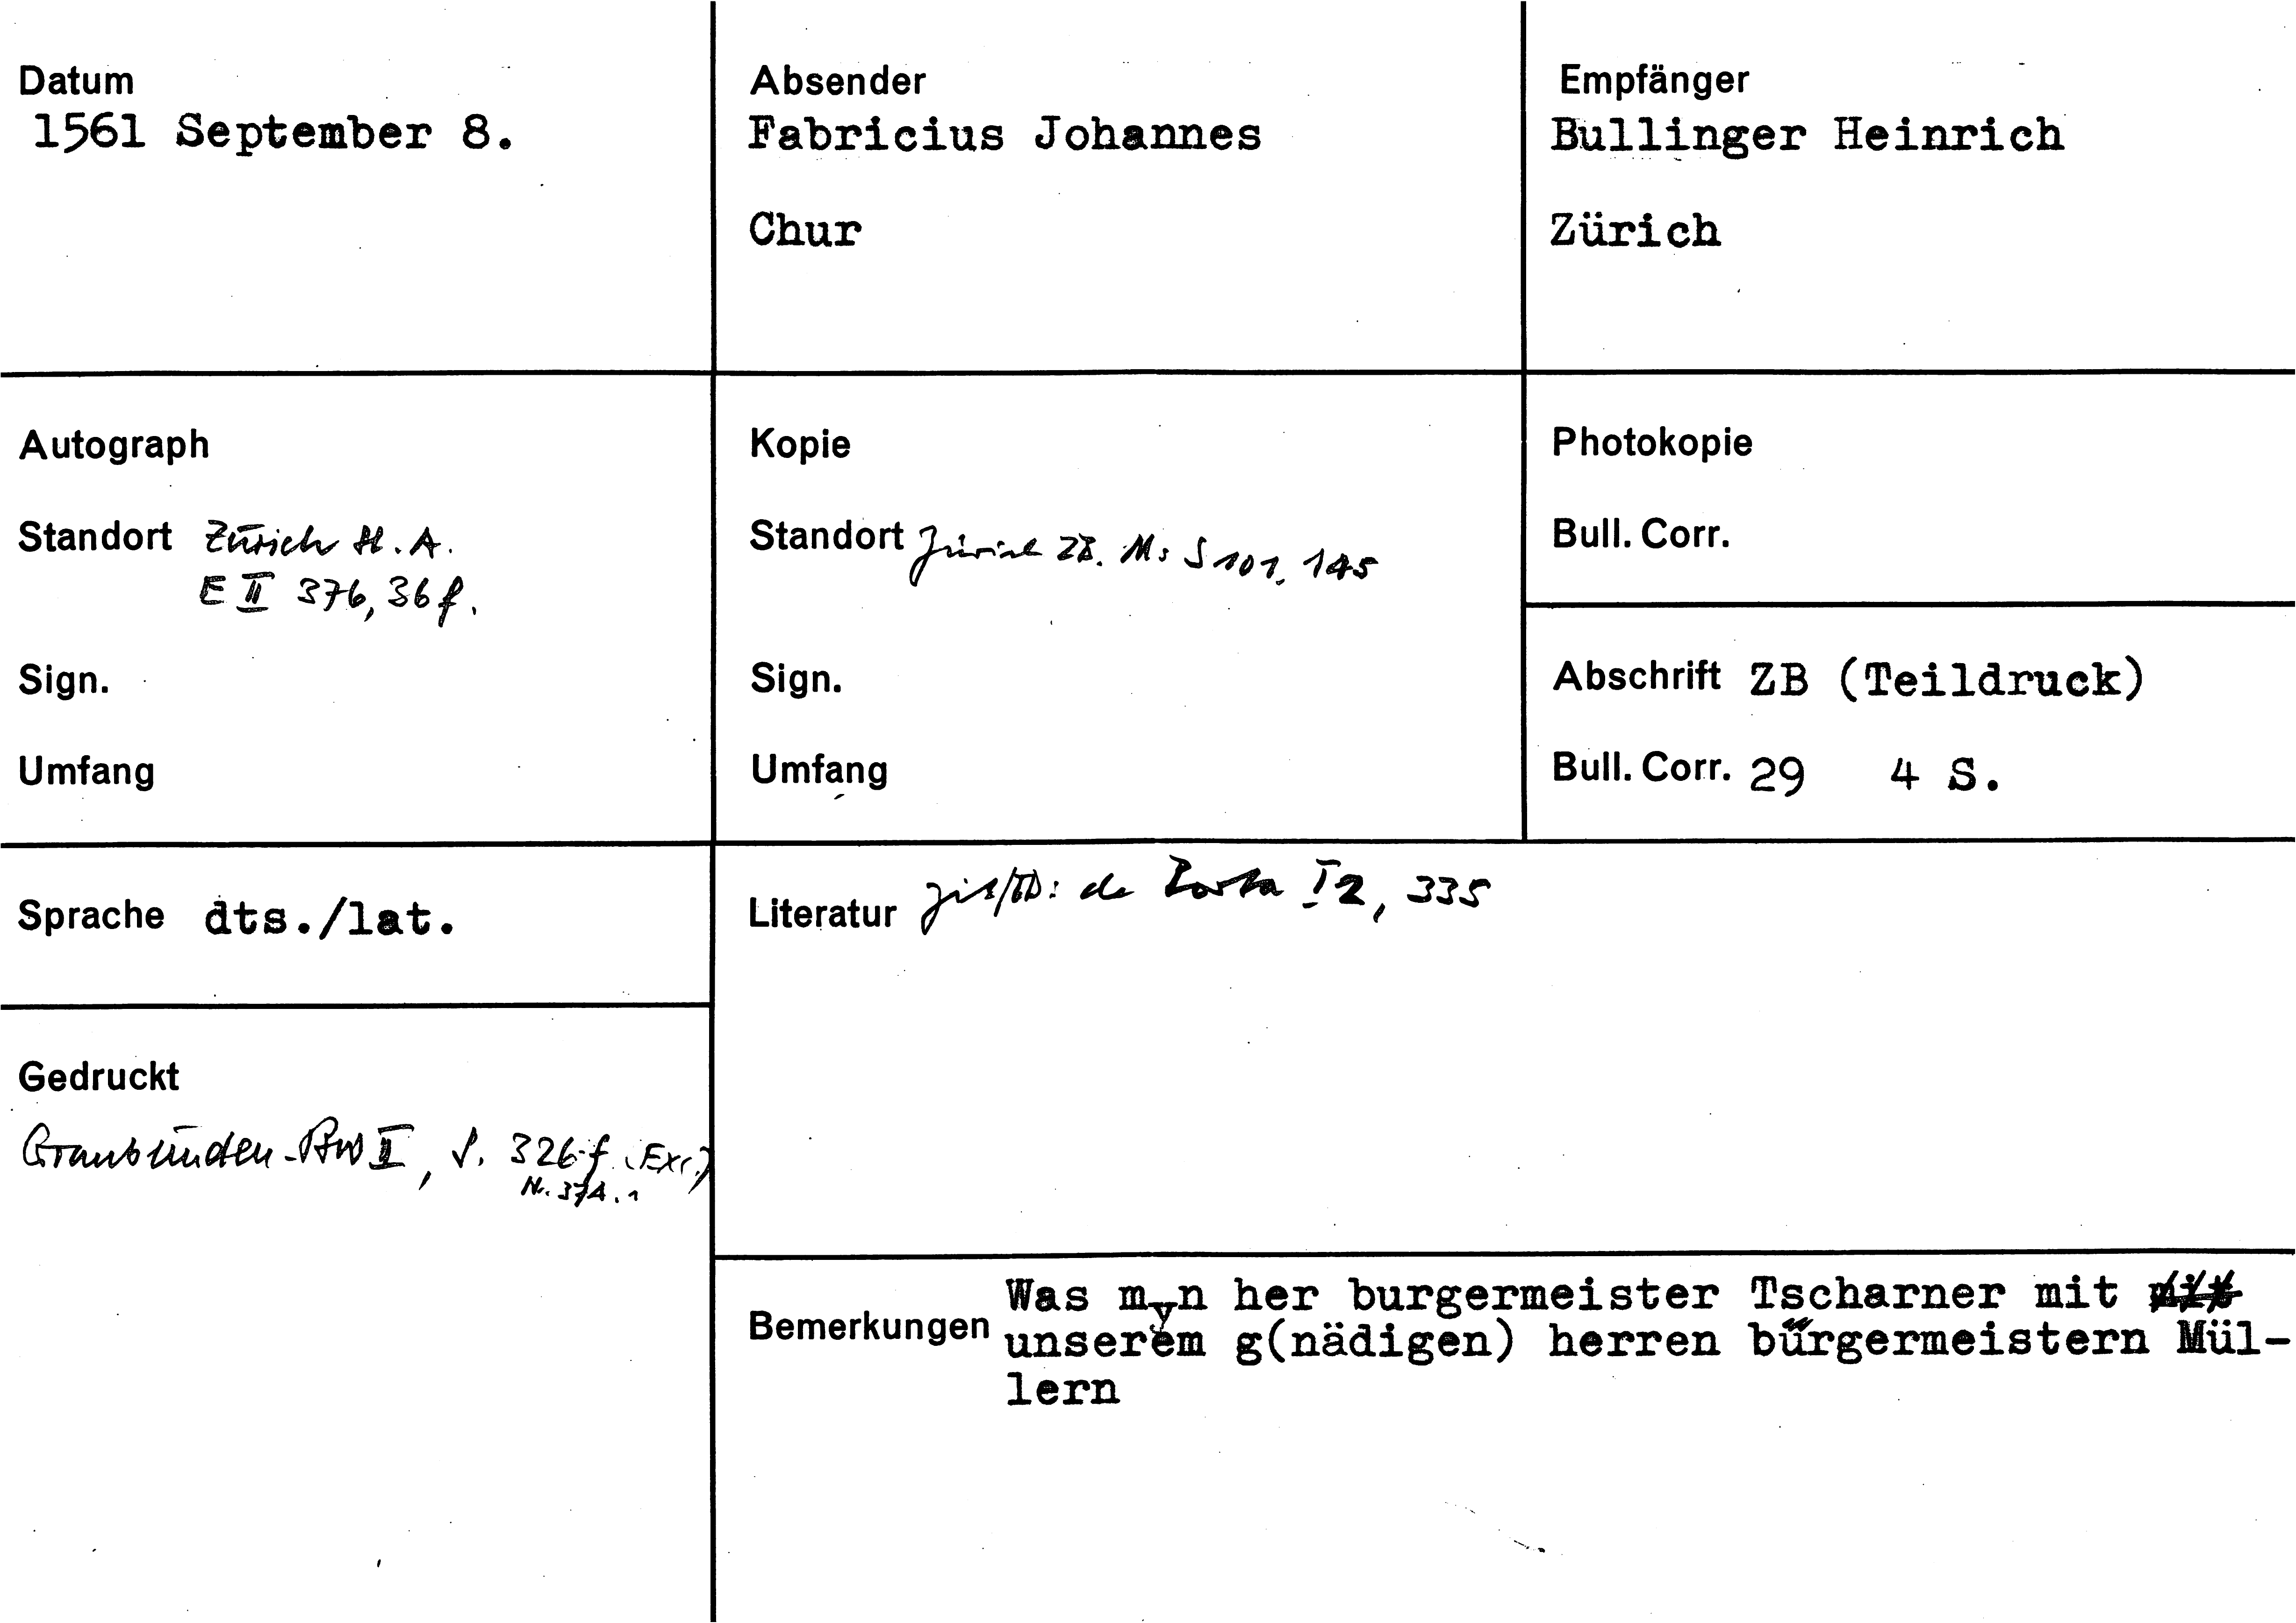 Datum
1561 September 8.
Absender
Fabricius Johannes
Chur
Empfänger
Bullinger Heinrich
Zürich
Autograph
Standort Zürich St. A.
E II 376, 36 f.
Sign.
Umfang
Kopie
Standort Zürich ZB. Ms S 101, 145
Sign.
Umfang
Photokopie
Bull. Corr.
Abschrift ZB (Teildruck)
Bull. Corr. 29 4 S.
Sprache dts./lat.
Literatur zit/TD: de Porta I 2, 335
Gedruckt
Graubünden-BW II, S. 326 f. (Exc.)
Nr. 374. 1
Bemerkungen
Was myn her burgermeister Tscharner mit mit
unserem g(nädigen) herren bürgermeistern Mül-
lern